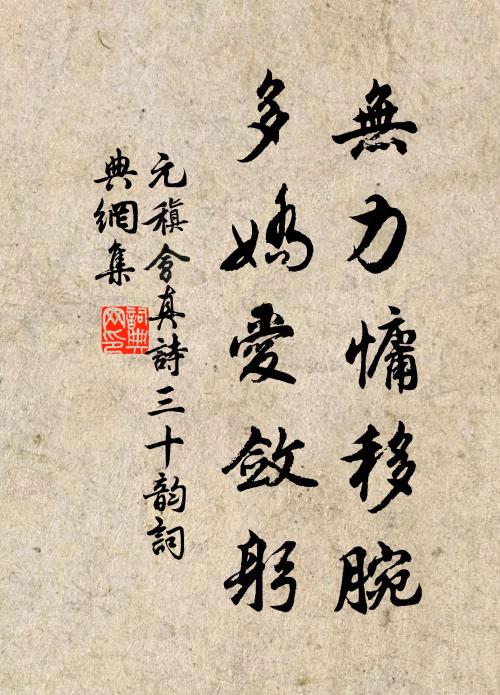 無力慵移腕
多嬌愛斂躬
元稹會真詩三十韵詞
典網集
詞典
网印